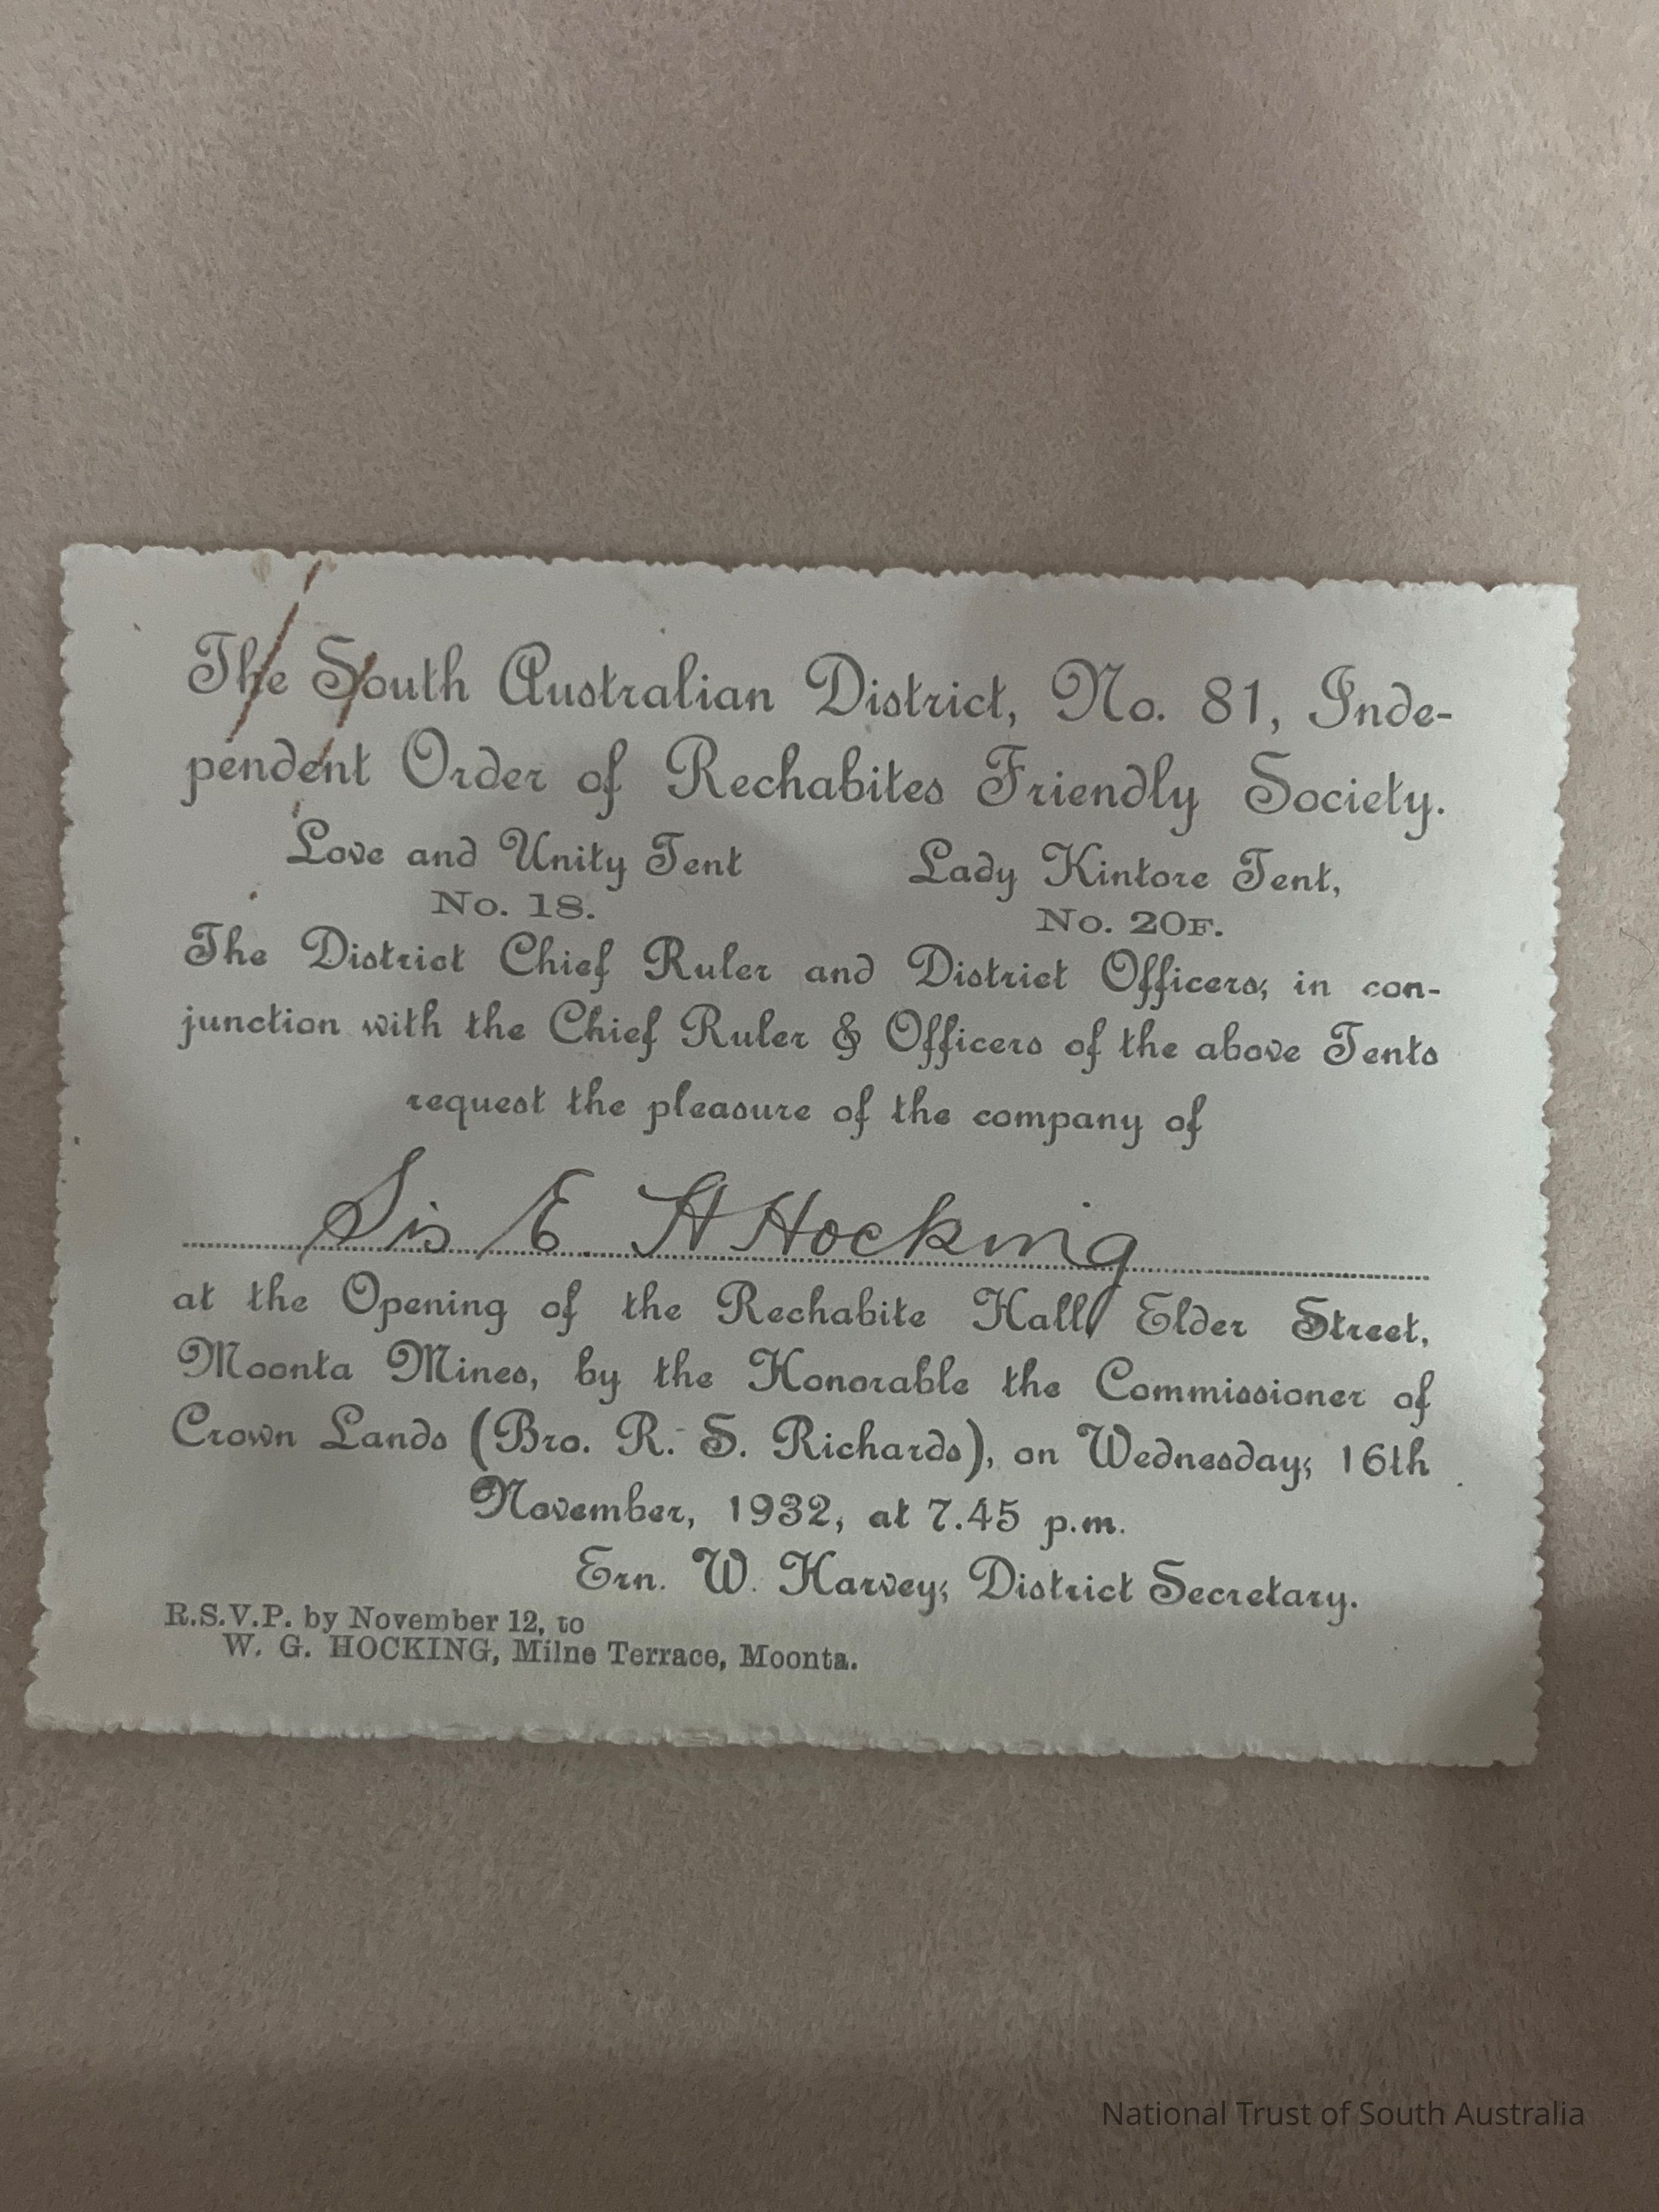 The South Australian District, No. 81, Inde-
pendent Order of Rechabites Friendly Society.
Love and Unity Tent
No. 18.
Lady Kintore Tent,
No. 20F.
The District Chief Ruler and District Officers, in con-
junction with the Chief Ruler & Officers of the above Tents
request the pleasure of the company of
Sis E. H Hocking
at the Opening of the Rechabite Hall Elder Street,
Moonta Mines, by the Honorable the Commissioner of
Crown Lands (Bro. R. S. Richards), on Wednesday, 16th
November, 1932, at 7.45 p.m.
Ern. W. Harvey, District Secretary.
R.S.V.P. by November 12, to
W. G. HOCKING, Milne Terrace, Moonta.
National Trust of South Australia